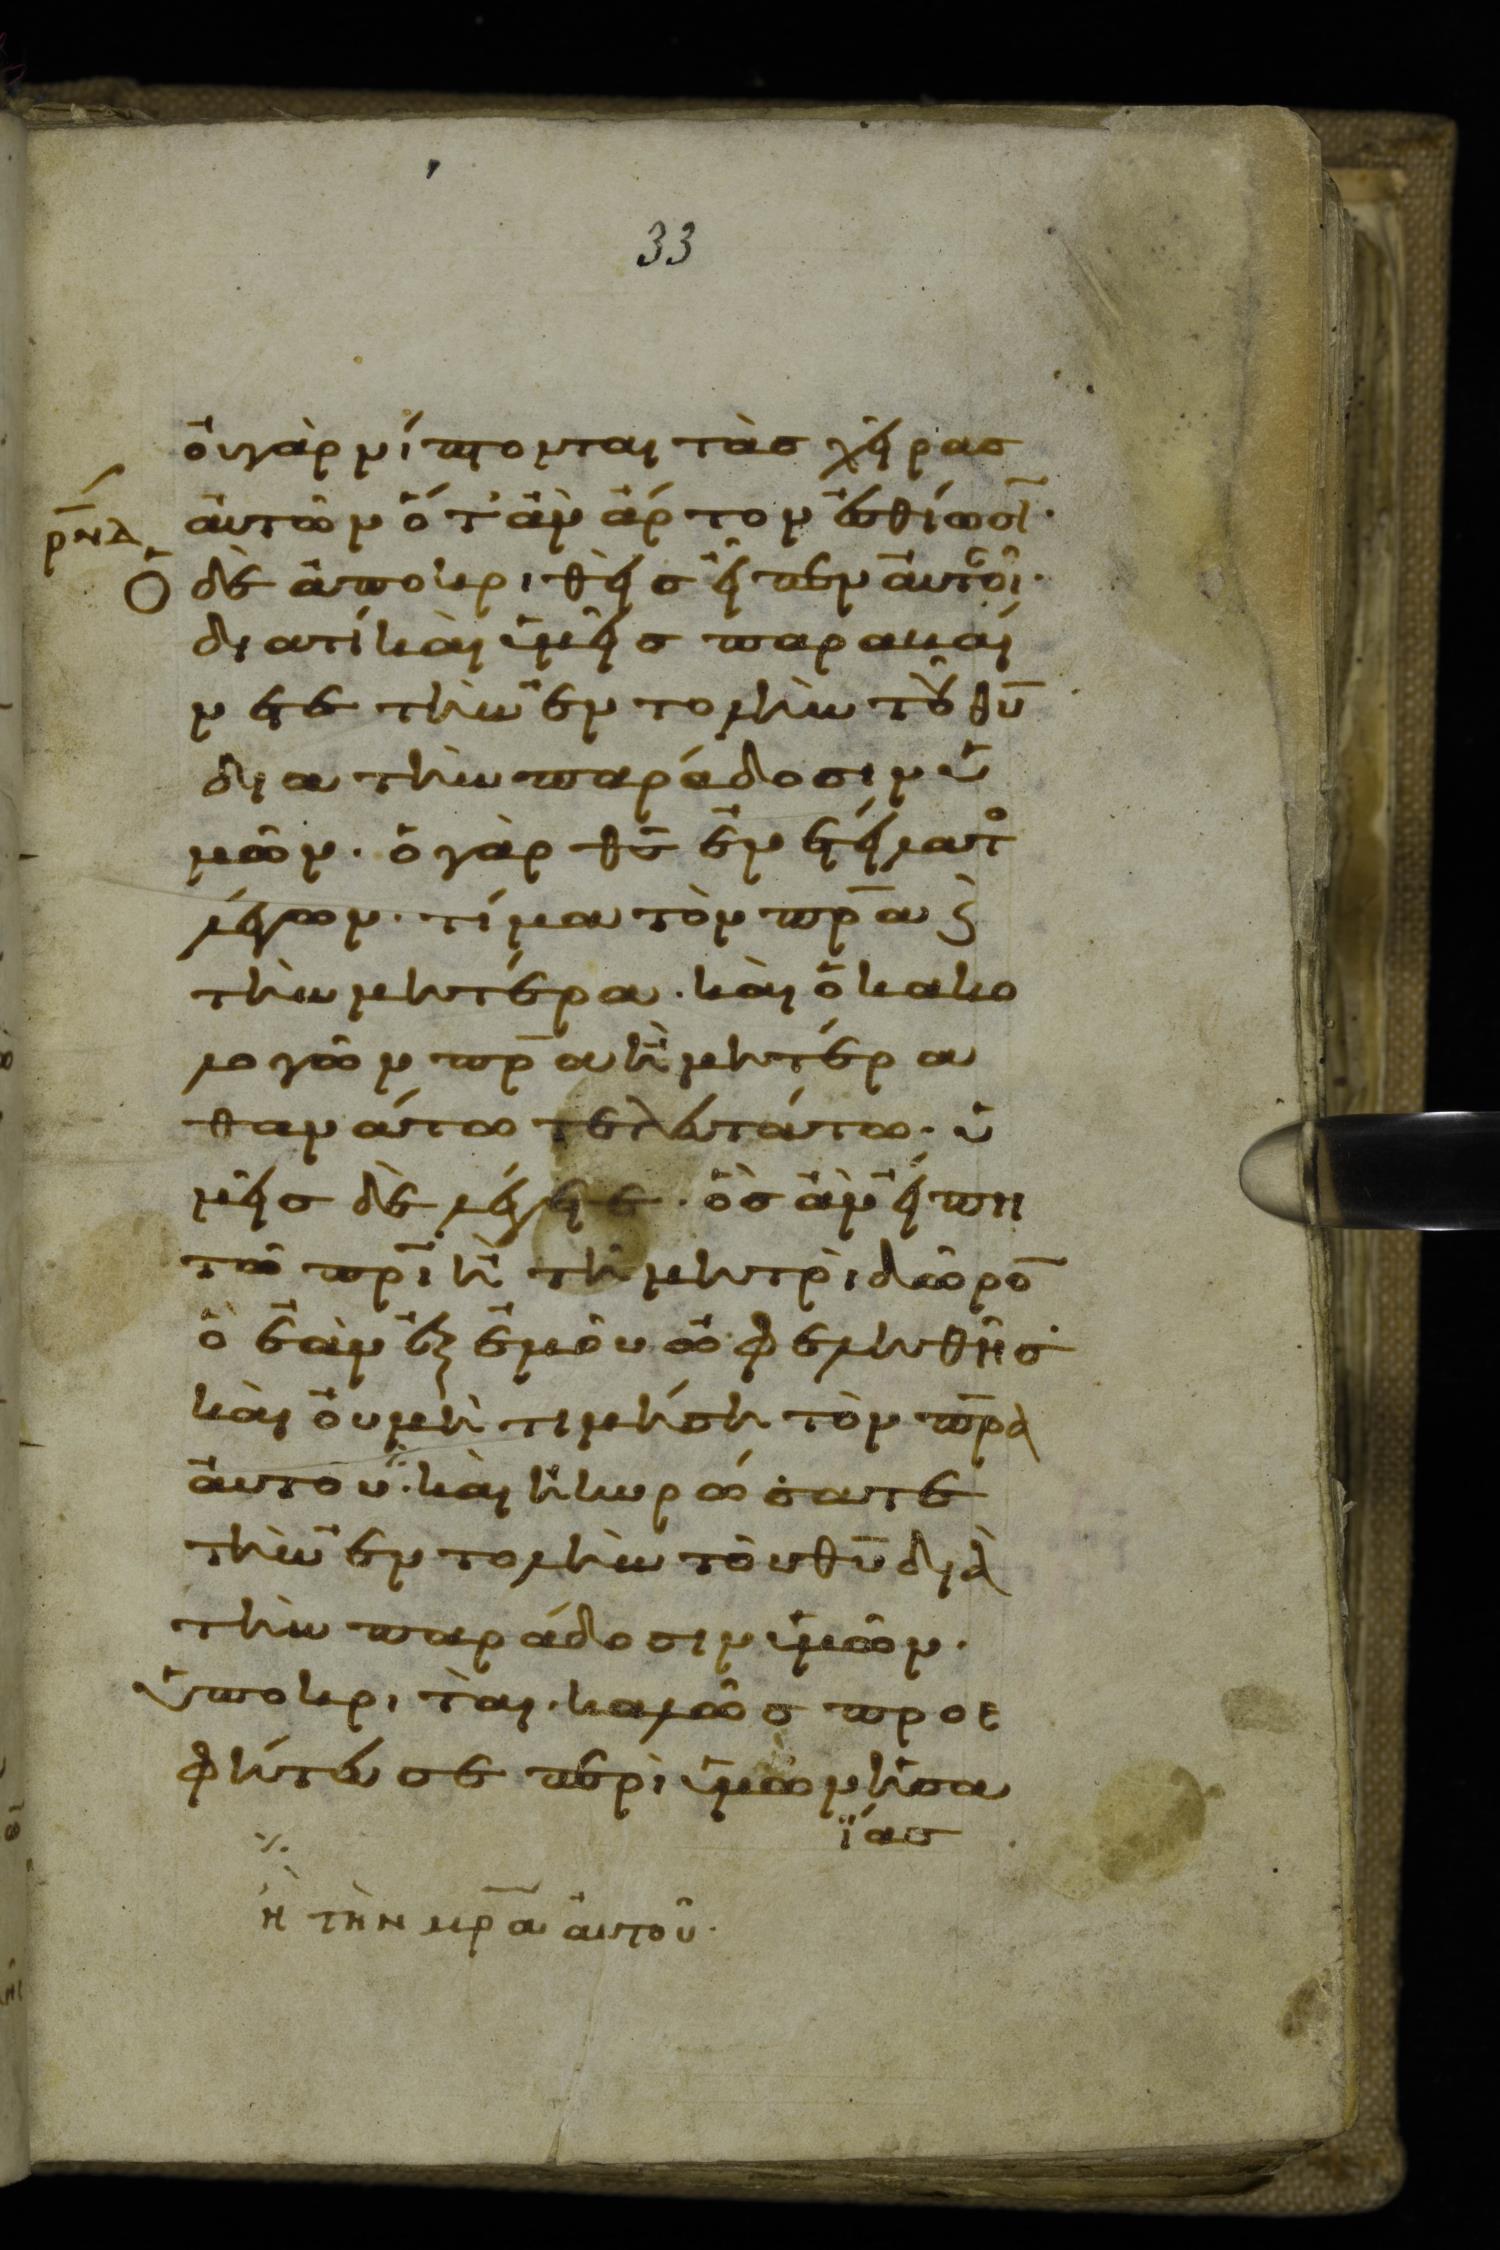 33
ὀυγὰρ νίπτονται τὰσ χεῖρασ
ἀυτῶν ὅτ' ἂν ἄρτον ἐσθίωσῑ·
ρ̄νδ
Ὁ δὲ ἀποκριθεὶσ εἶπεν ἀυτοῖ·
διατί καὶ ὑμεῖσ παραβαί
νετε τὴν ἐντολὴν τοῦ θῡ
δια τὴν παράδοσιν ὑ
μῶν· ὁ γὰρ θς̄ ἐνετείλατο
λέγων· τίμα τὸν πρ̄α ϗ
τὴν μητέρα· καὶ ὁ κακο
λογῶν πρ̄α ἢ μητέρα
θανάτω τελευτάτω· ὑ
μεῖσ δὲ λέγετε· ὃσ ἂν εἴπη
τῶ πρ̄ι ἢ τῆ μητρὶ δῶρο̄
ὃ ἐὰν ἐξ ἐμοῦ ὠφεληθῆσ·
καὶ ὀυ μὴ τιμήση τὸν πρ̄α
ἀυτοῦ·⁒ καὶ ἠκυρώσατε
τὴν ἐντολὴν τοῦ θῡ διὰ
τὴν παράδοσιν ὑμῶν·
ὑποκριταὶ· καλῶσ προε
φήτευσε περὶ ὑμῶν ἡσα
ΐασ
⁒
ἢ τὴν μρ̄α ἀυτοῦ·